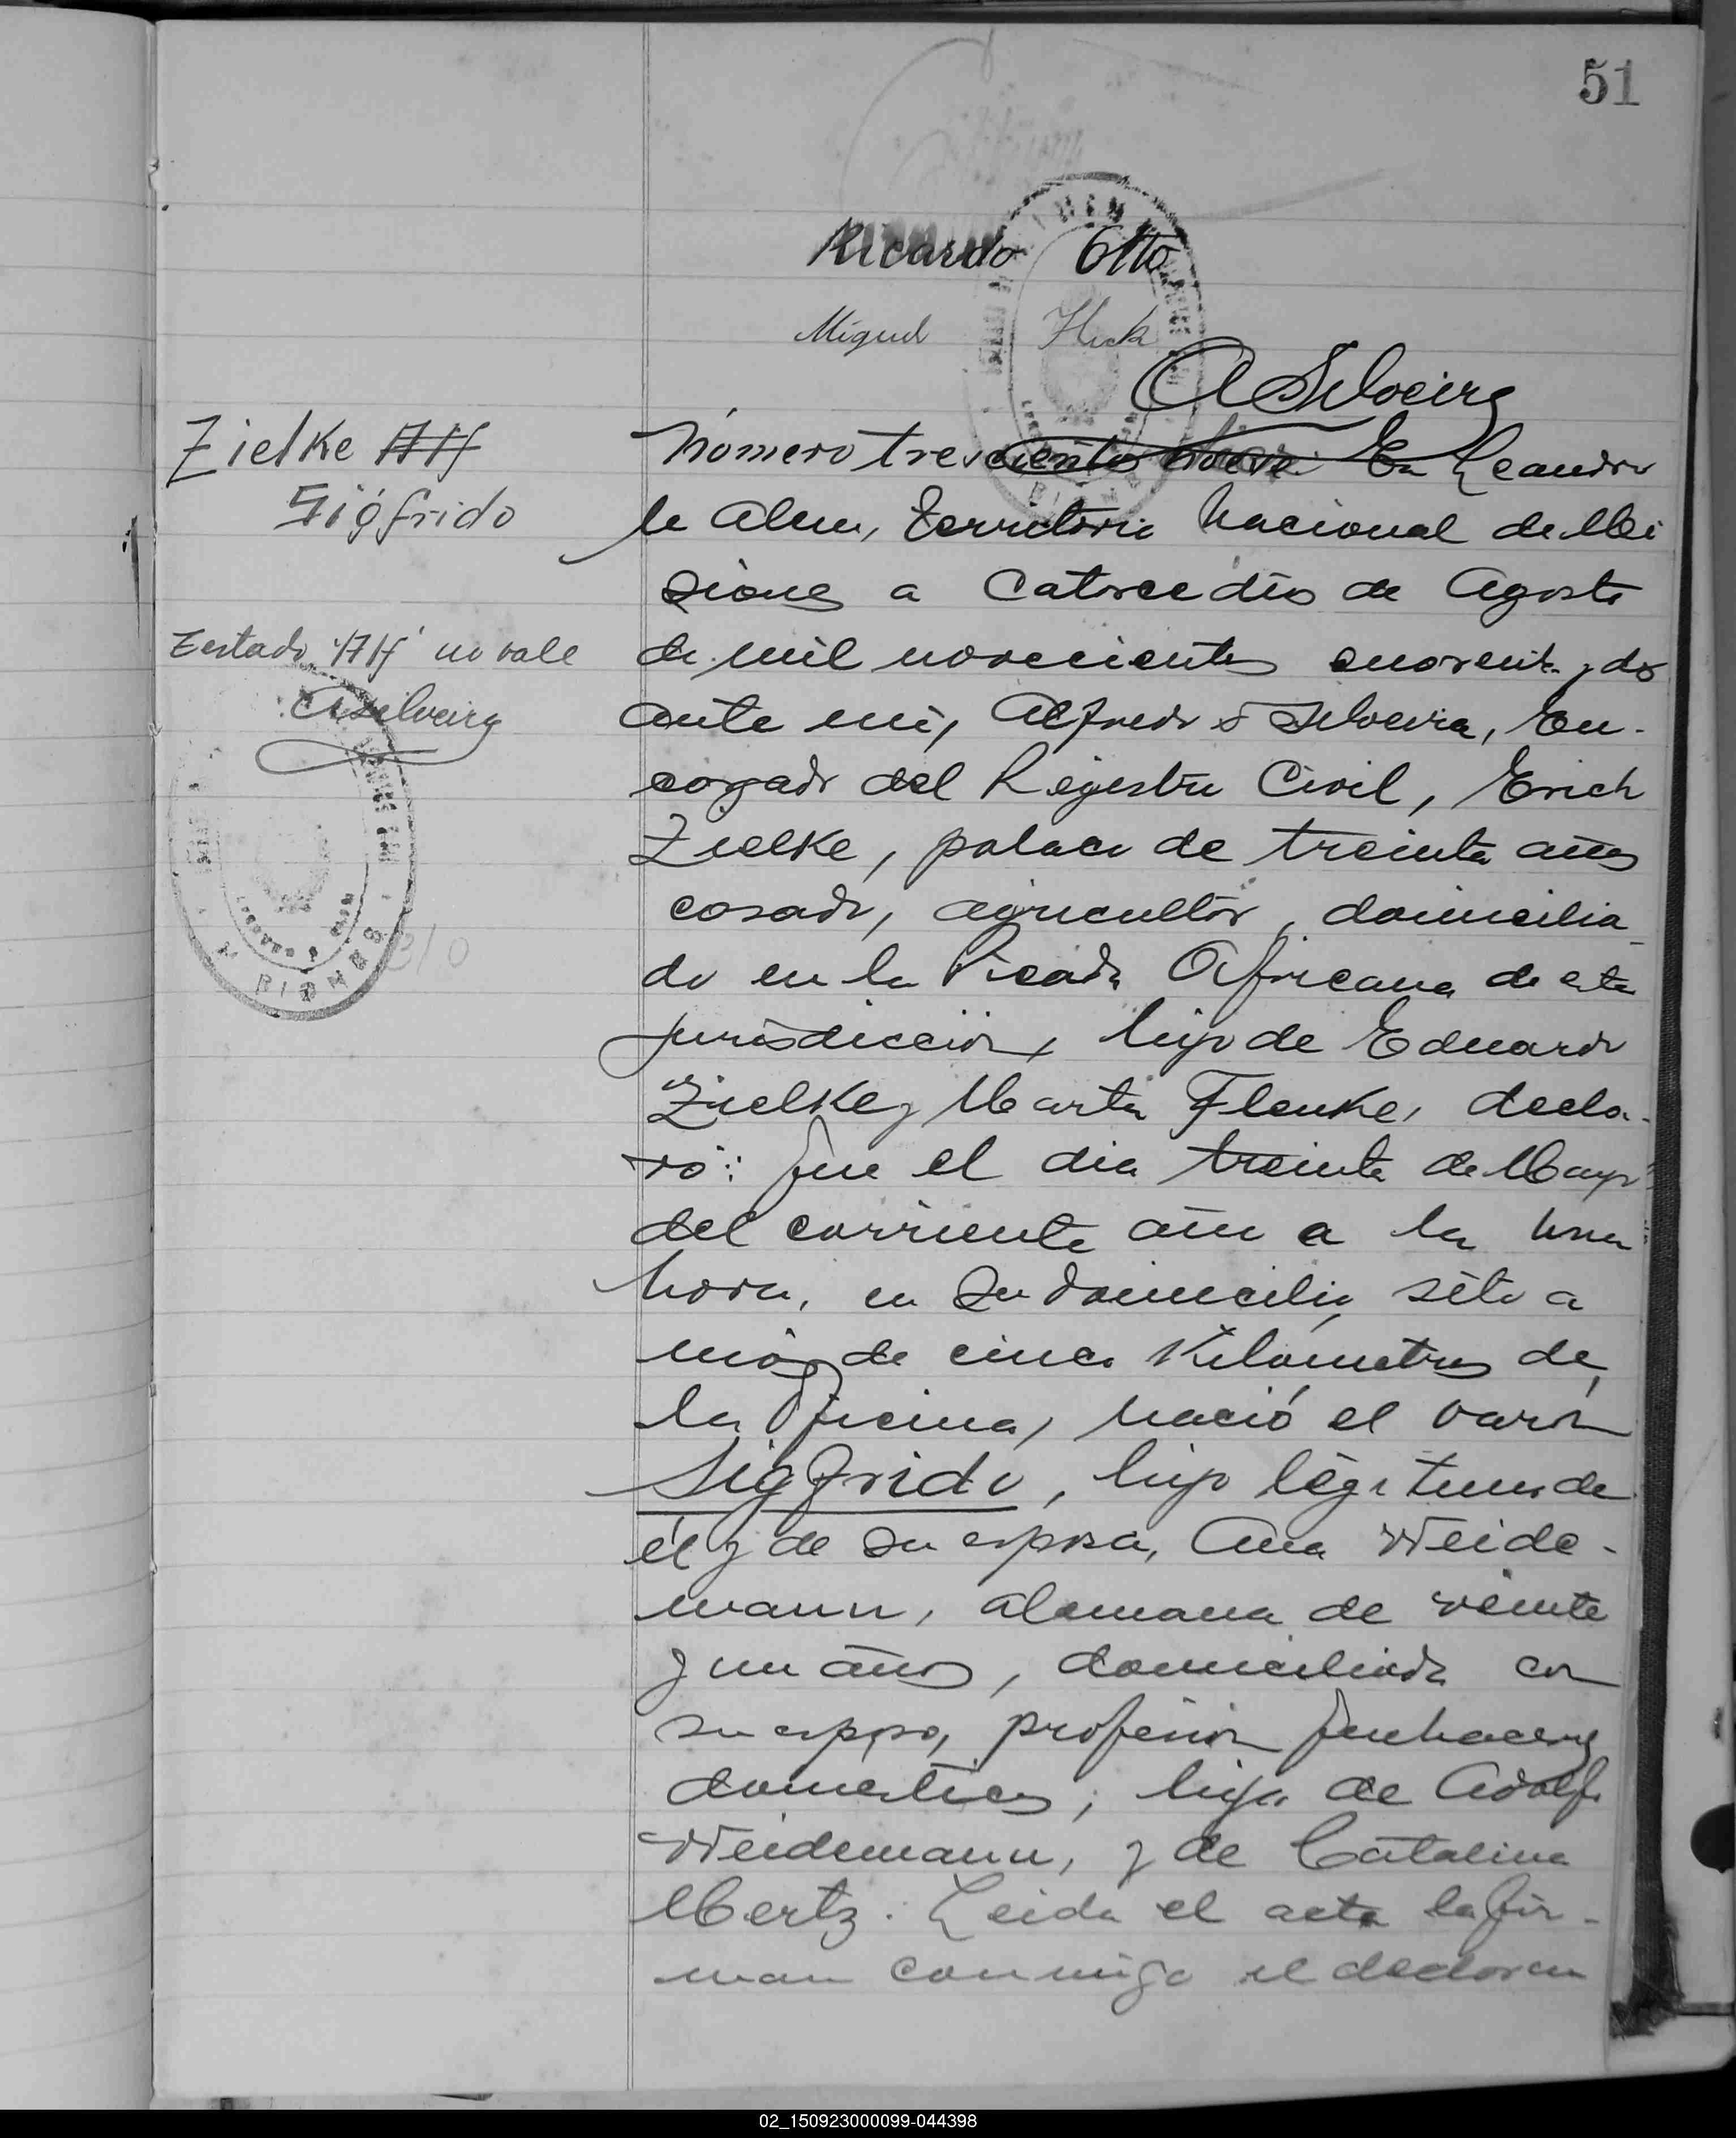 51
Ricardo Otto
Miguel
A Silveira
Zielke
Sigfrido
Testado "Alf" no vale
ASilveira
Número trescientos nueve En Leandro
le Alem, Territorio Nacional de Mi
siones a catorce dias de Agosto
de mil novecientos cuarenta y dos
ante mi, Alfredo S Silveira, En-
cargado del Registro Civil, Erich
Zielke, polaco de treinta años
casado, agricultor, domicilia-
do en la Picada Africana de esta
jurisdicción, hijo de Eduardo
Zielke y Marta Flenke, decla-
ró: fue el dia treinta de Mayo
del corriente año a la una
hora, en su domicilio, sito a
más de cinco Kilometros de
la Oficina, nació el varon
Sigfrido, hijo légitimo de
él y de su esposa, Ana Weide-
mann, alemana de veinte
y un años, domiciliada con
su esposo, profesión quehaceres
domesticos, hija de Adolfo
Weidemann, y de Catalina
Mertz. Leida el acta la fir-
man conmigo el declaran
BIONES
310
02_150923000099-044398